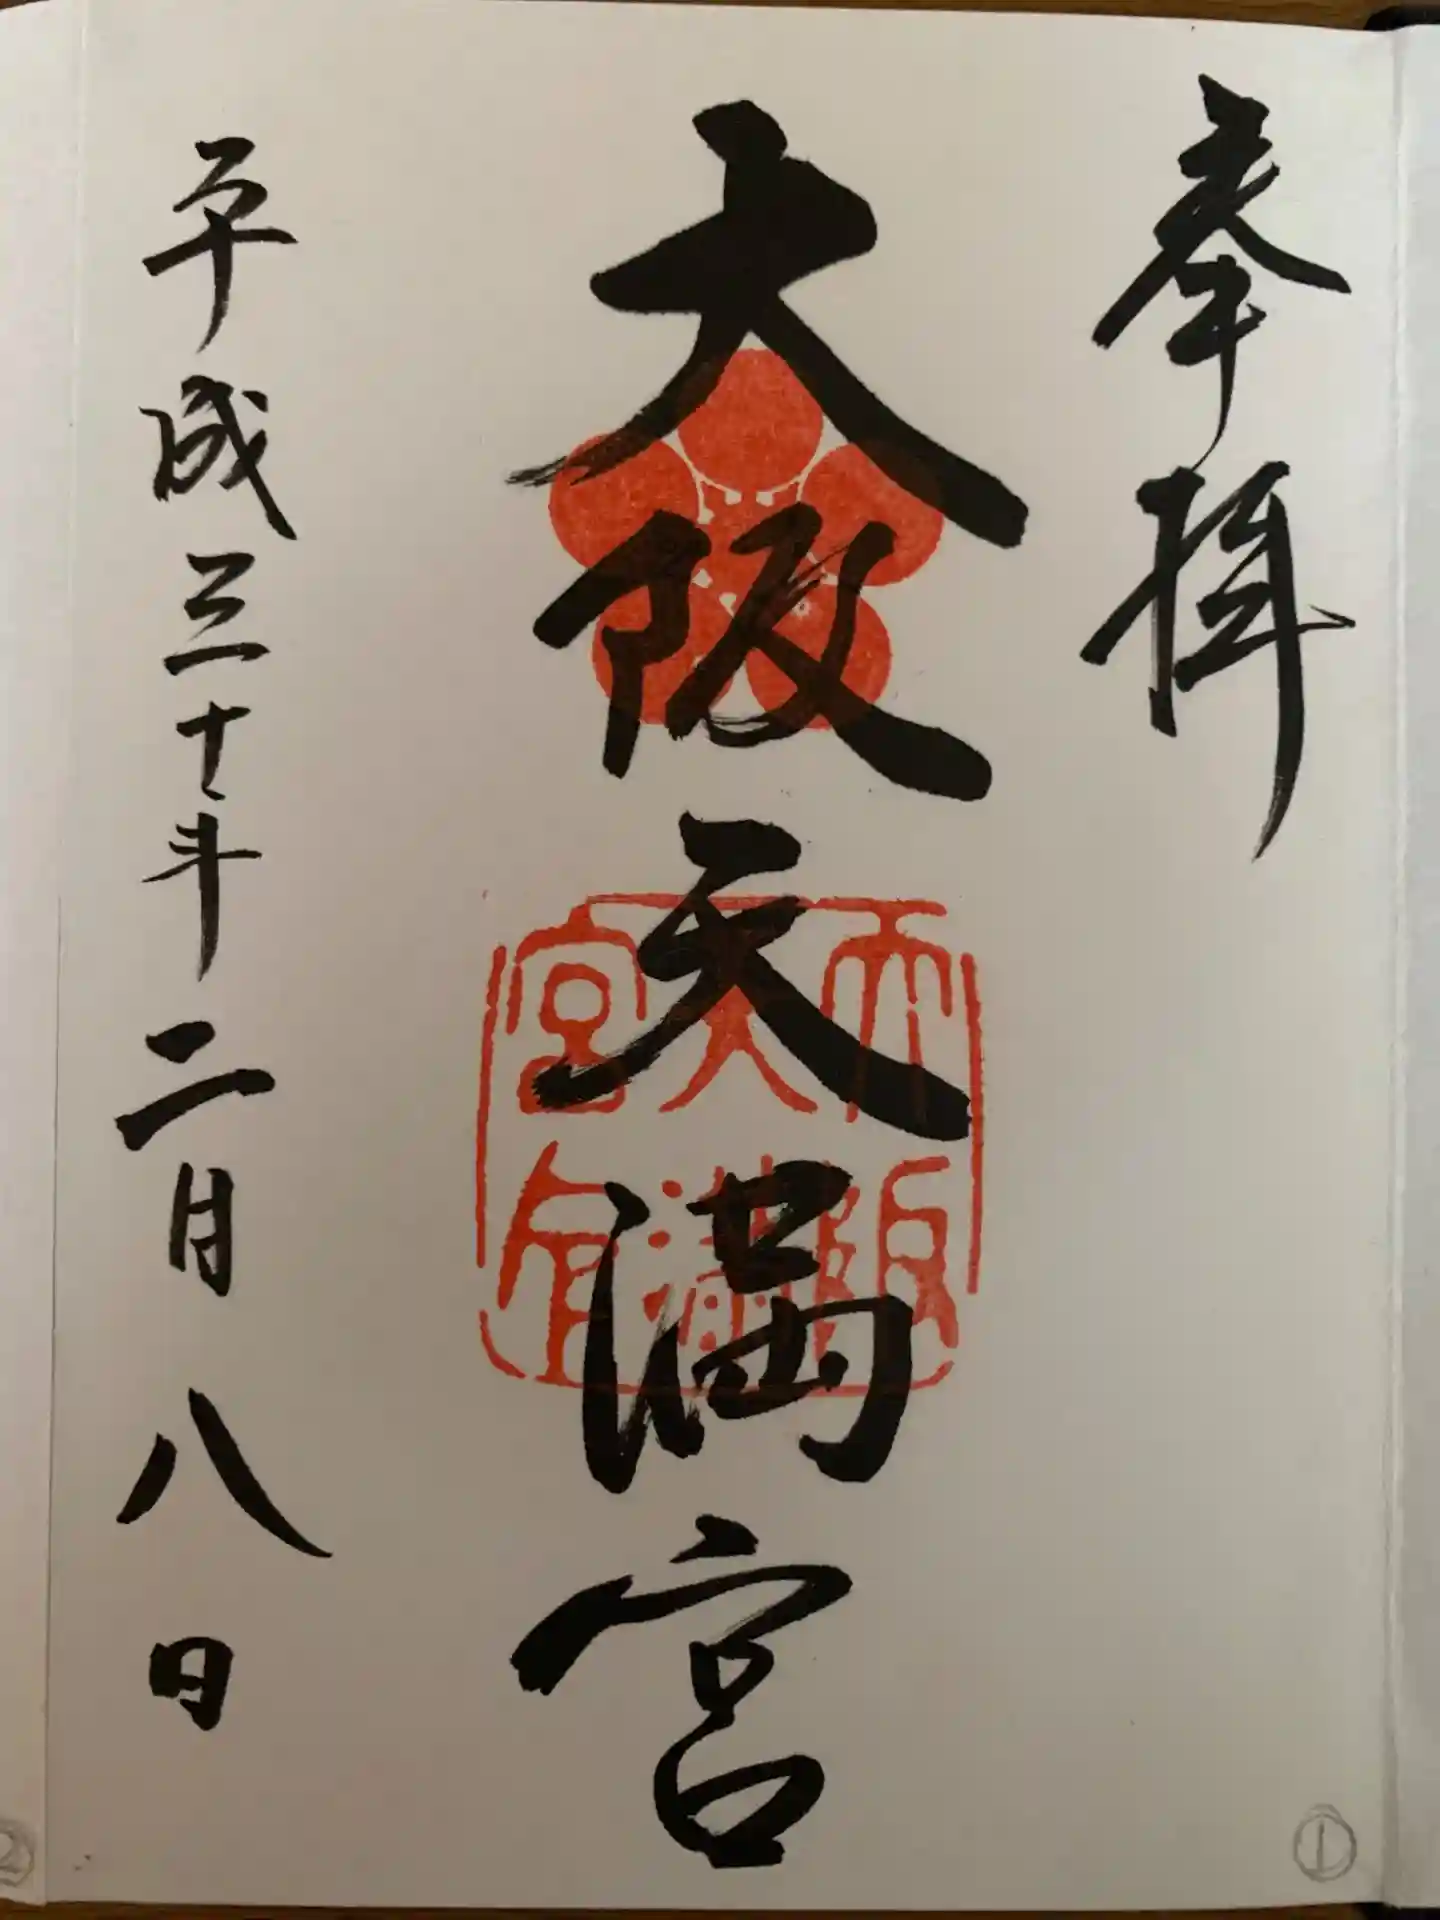 奉拝
大阪天満宮
大阪天満宮印
平成三十年二月八日
①
②